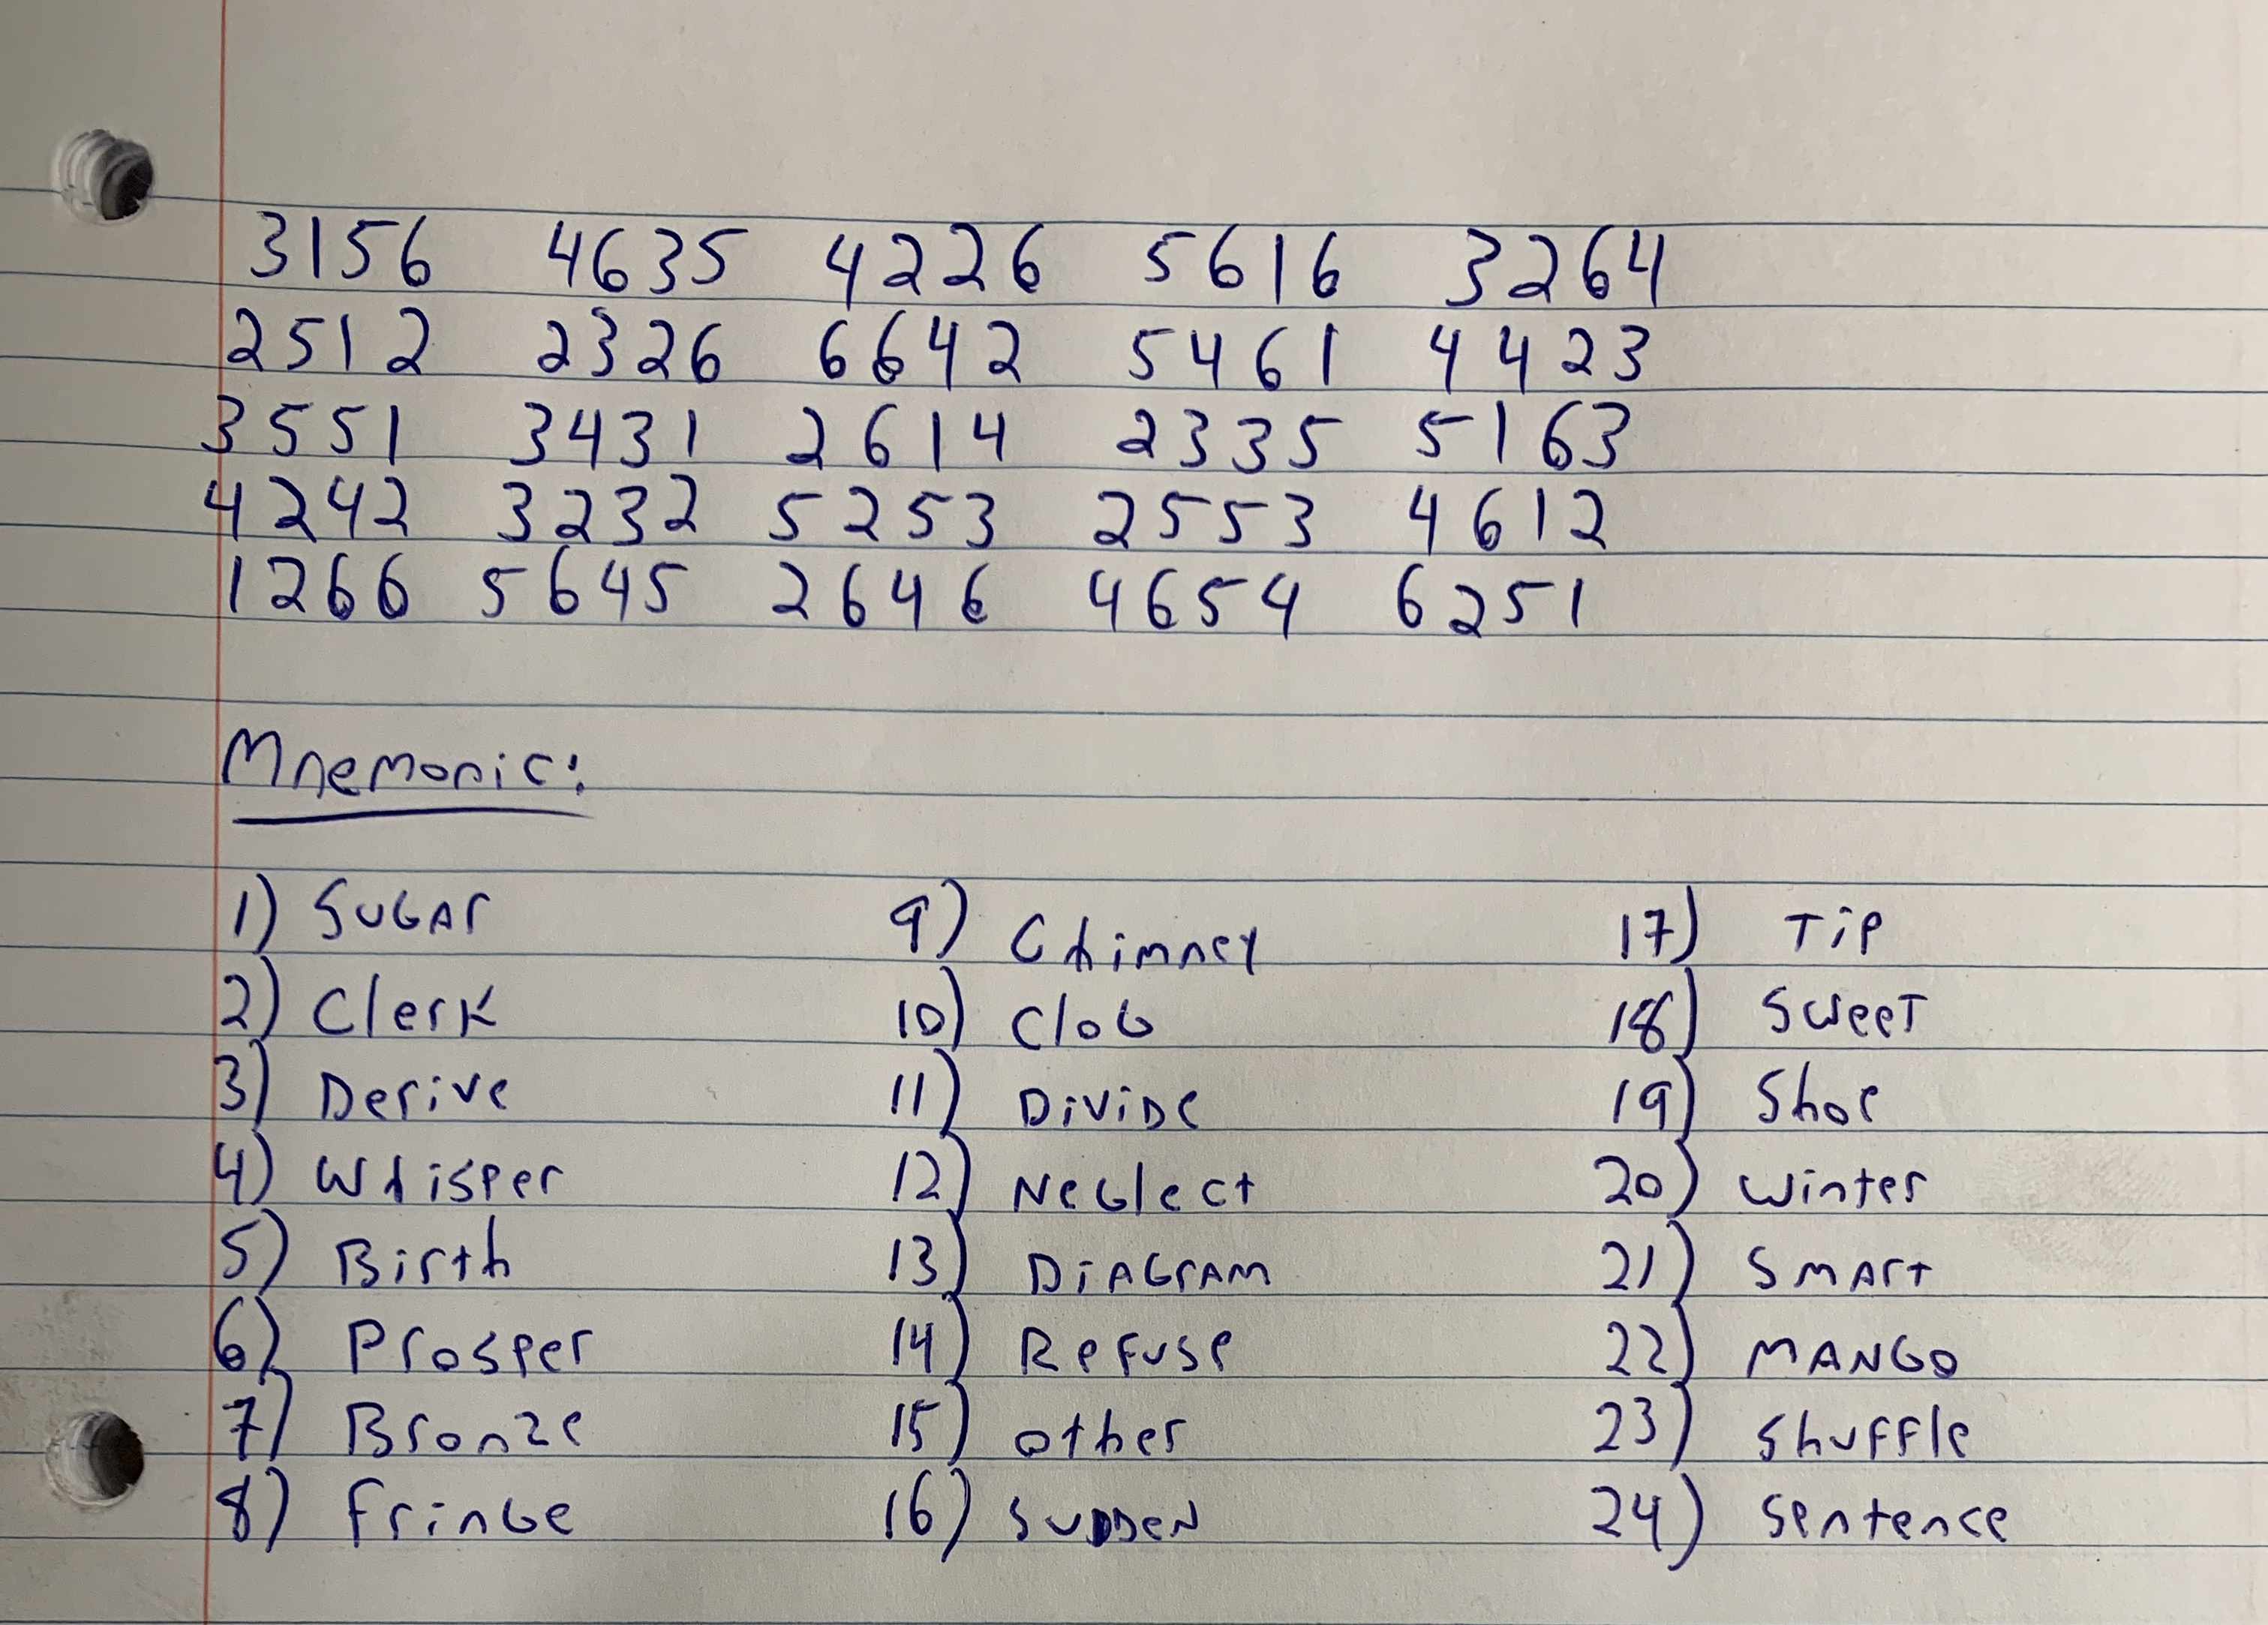 3156 4635 4226 5616 3264
2512 2326 6642 5461 4423
3551 3431 2614 2335 5163
4242 3232 5253 2553 4612
1266 5645 2646 4654 6251
Mnemonic:
1) Sugar 9) Chimney 17) Tip
2) Clerk 10) Clog 18) Sweet
3) Derive 11) Divide 19) Shoe
4) Whisper 12) Neglect 20) Winter
5) Birth 13) Diagram 21) Smart
6) Prosper 14) Refuse 22) MANGO
7) Bronze 15) other 23) Shuffle
8) Fringe 16) Sudden 24) Sentence